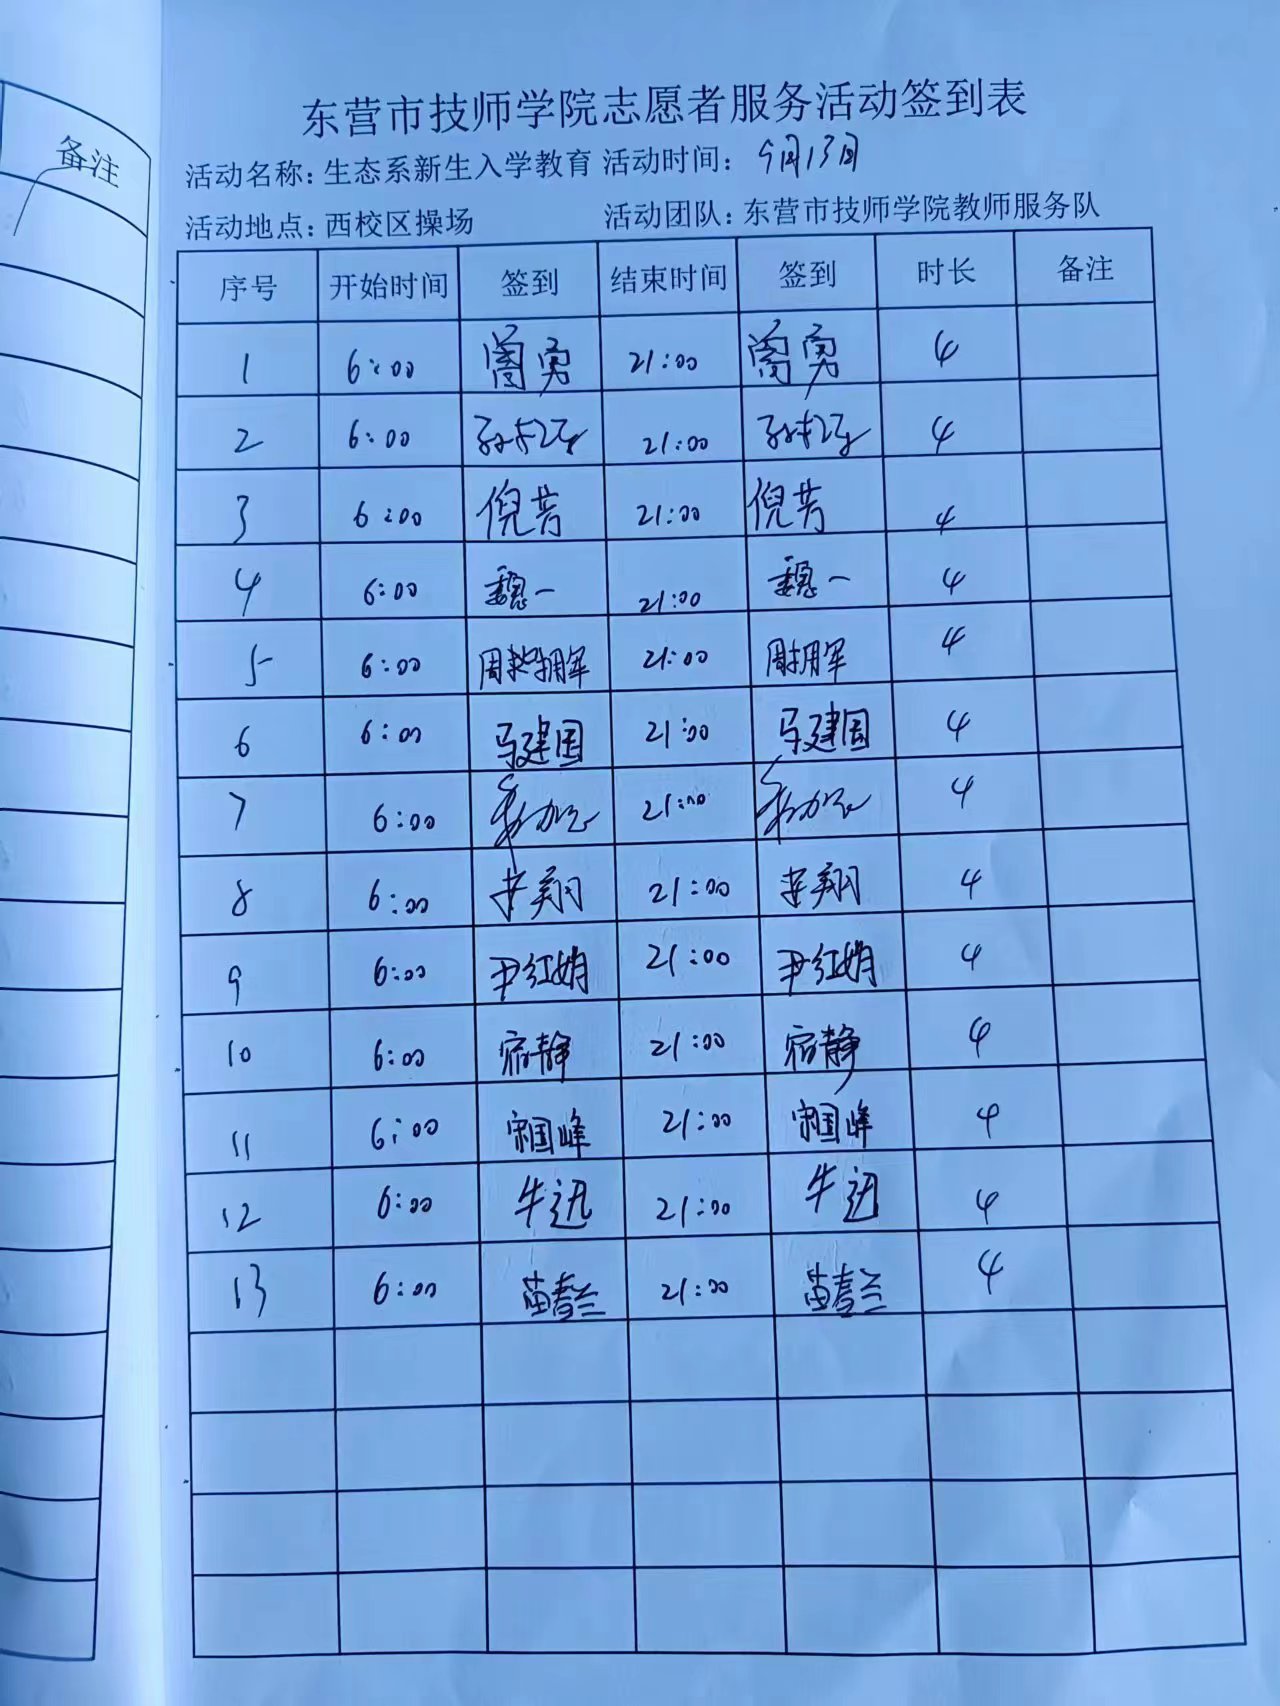 备注
东营市技师学院志愿者服务活动签到表
活动名称:生态系新生入学教育 活动时间: 9月13日
活动地点:西校区操场 活动团队:东营市技师学院教师服务队
序号 开始时间 签到 结束时间 签到 时长 备注
1 6:00 勇 21:00 勇 4
2 6:00 21:00 4
3 6:00 倪芳 21:00 倪芳 4
4 6:00 魏一 21:00 魏一 4
5 6:00 周拥军 21:00 周拥军 4
6 6:00 马建国 21:00 马建国 4
7 6:00 21:00 4
8 6:00 李翔 21:00 李翔 4
9 6:00 尹红娟 21:00 尹红娟 4
10 6:00 宿静 21:00 宿静 4
11 6:00 宋国峰 21:00 宋国峰 4
12 6:00 牛迅 21:00 牛迅 4
13 6:00 苗春兰 21:00 苗春兰 4